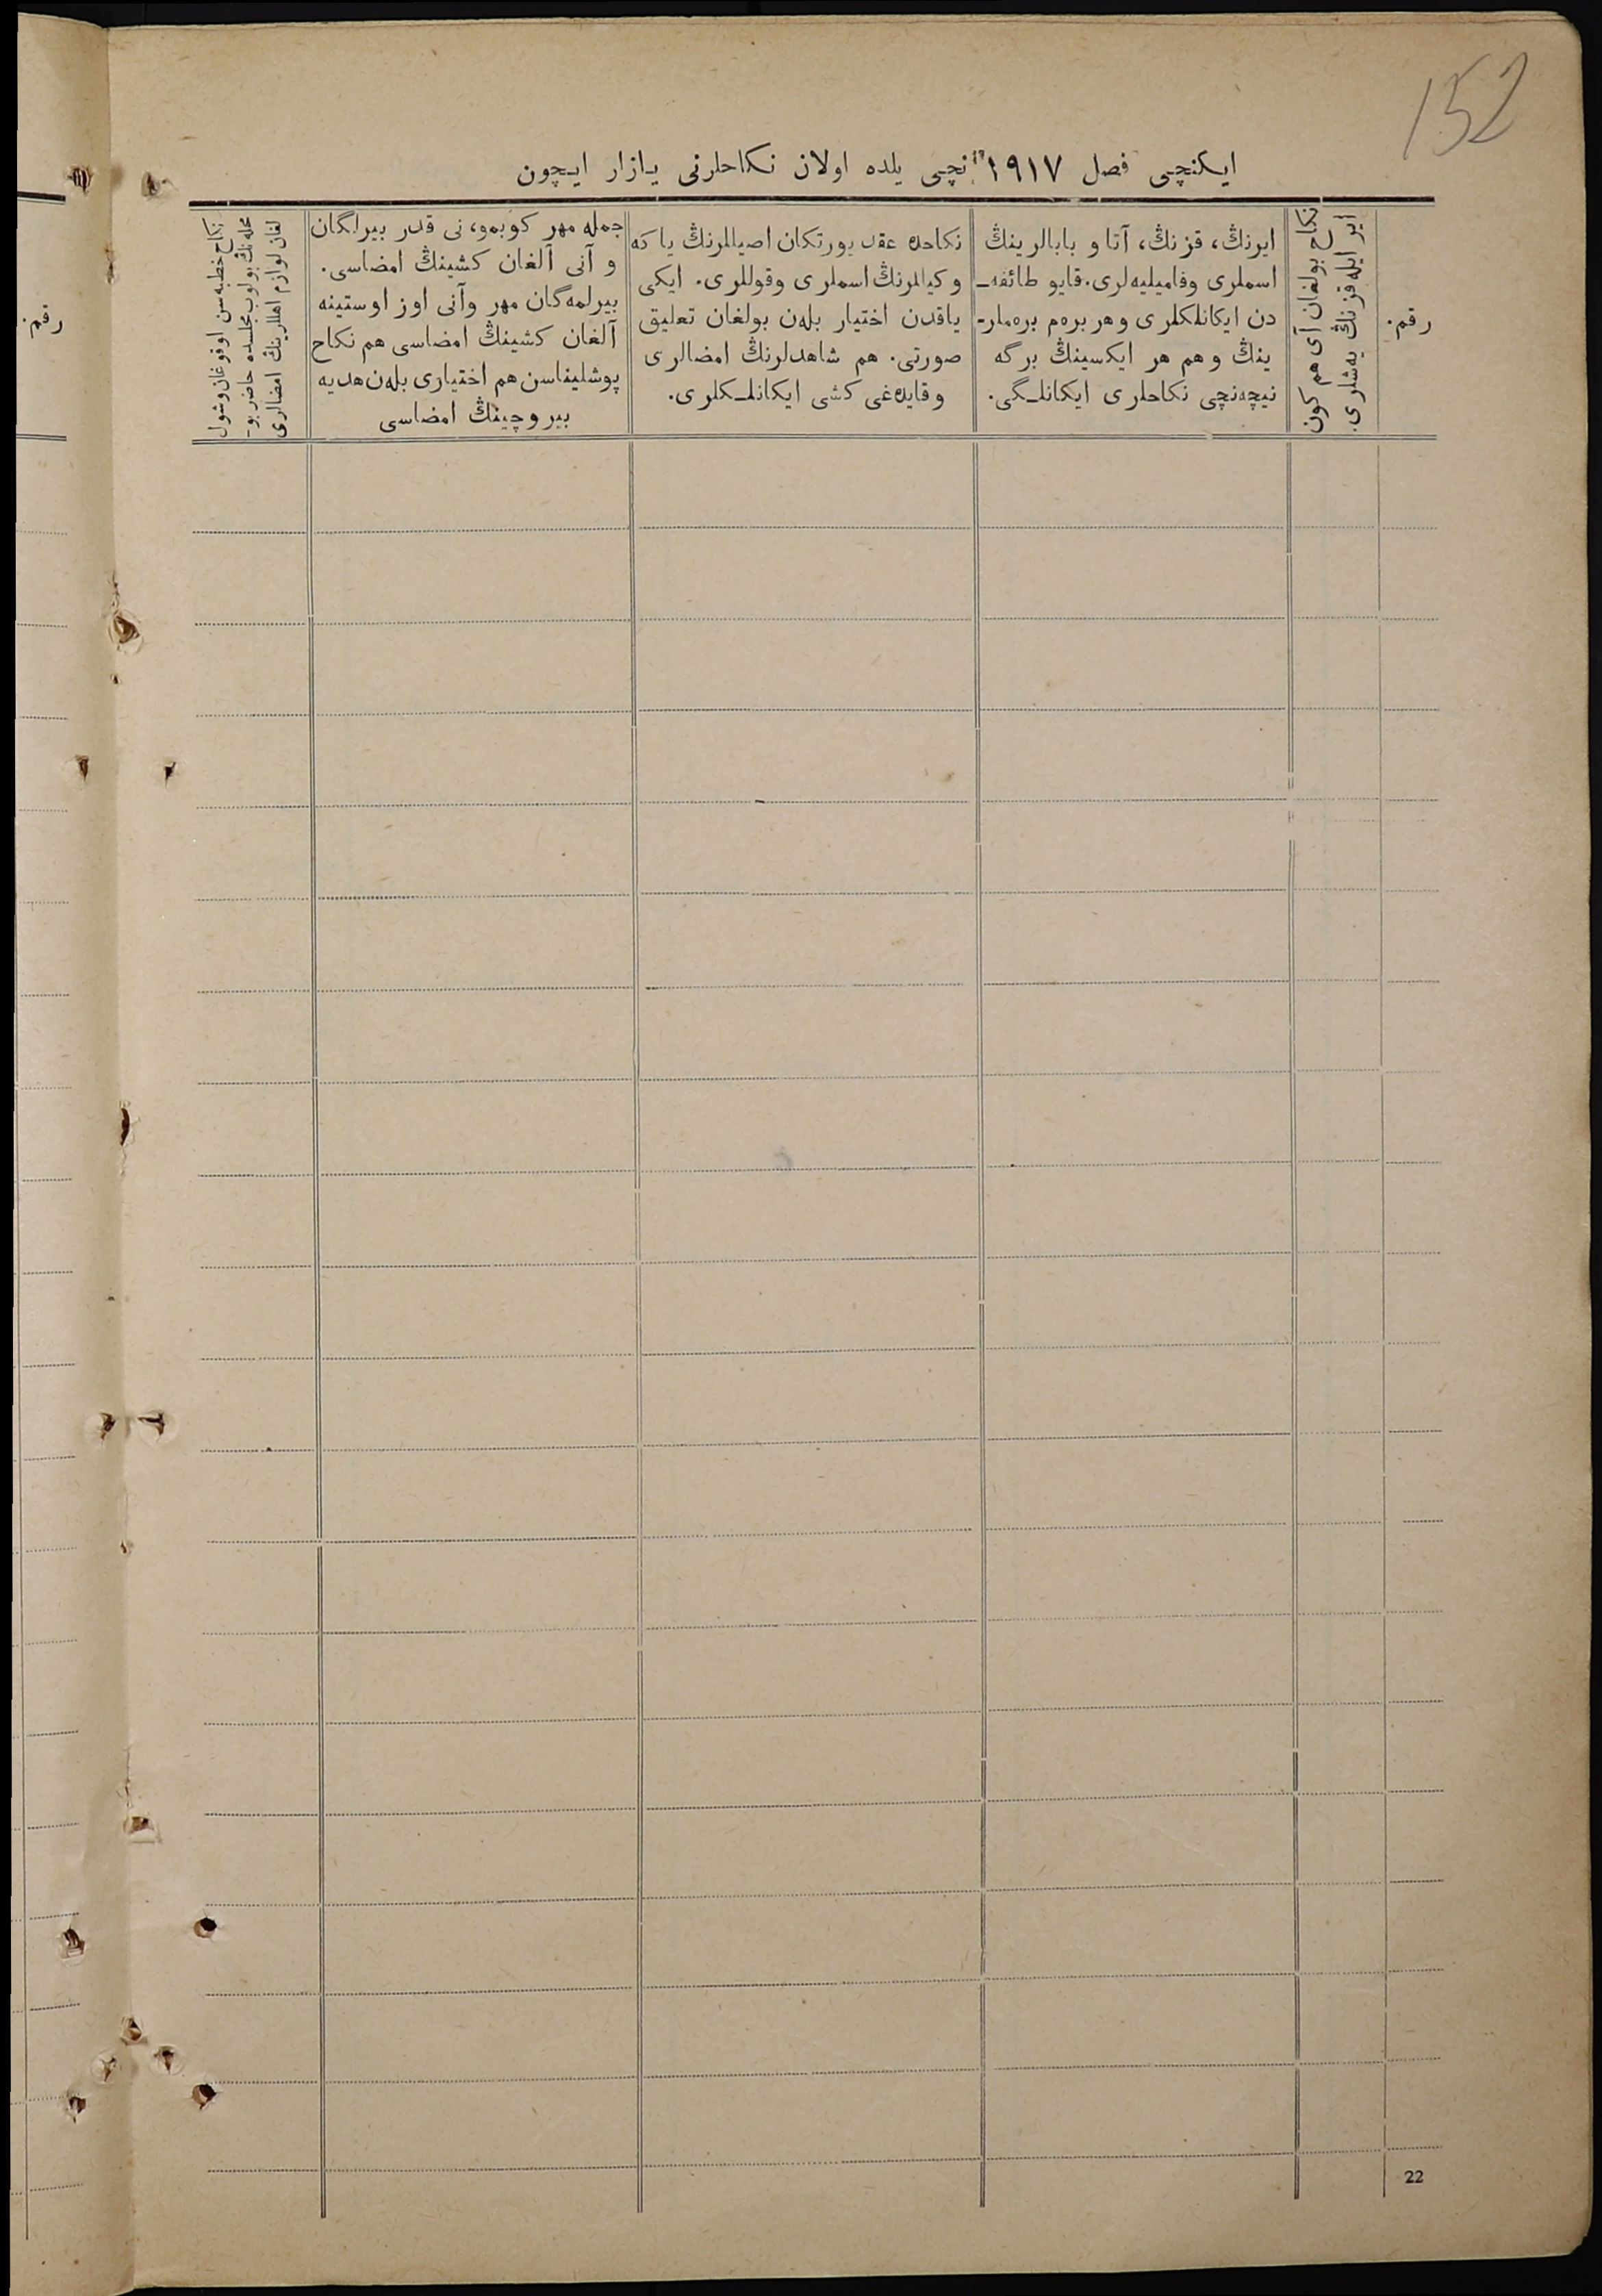 152
ایکنچی فصل ١٩١٧ نچی یلده اولان نکاحلرنی یازار ایچون
رقم.
نکاح بولغان آی هم کون
ایر ایله قزنڭ یەشلری.
ایرنڭ، قزنڭ، آتا و بابالرینڭ
اسملری وفامیلیەلری. قایو طائفه‌ـ
دن ایکانلکلری و هر برەم برەملرـ
ینڭ و هم هر ایکسینڭ برگه
نیچەنچی نکاحلری ایکانلـگی.
نکاحده عقد یورتکان اصیللرنڭ یا که
وکیللرنڭ اسملری وقوللری. ایکی
یاقدن اختیار بلەن بولغان تعلیق
صورتی. هم شاهدلرنڭ امضالری
وقایدەغی کشی ایکانلـکلری.
جمله مهر کوبمو، نی قدر بیرلگان
و آنی آلغان کشینڭ امضاسی.
بیرلمەگان مهر وآنی اوز اوستینه
آلغان کشینڭ امضاسی هم نکاح
پوشلیناسن هم اختیاری بلەن هدیه
بیروچینڭ امضاسی
نکاح خطبەسن اوقوغان وشول
محلەنڭ بولوب مجلسده حاضر بوـ
لغان لوازم اهللرینڭ امضالری
رقم.
22